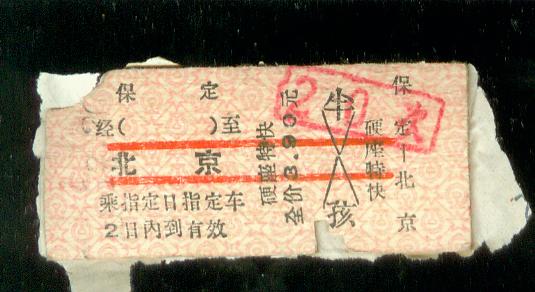 保定
经( )至
北京
乘指定日指定车
2日内到有效
硬座特快
全价3.90元
半
孩
20次
保定—北京
硬座特快